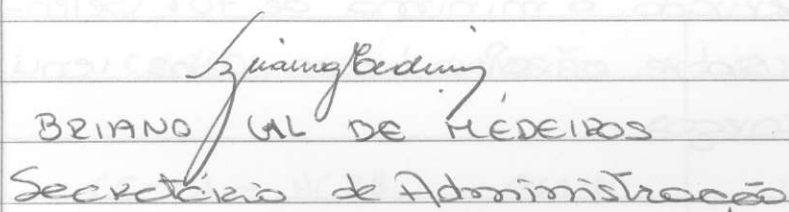 BRIANO GAL DE MÉDEIROS
Secretário de Administração